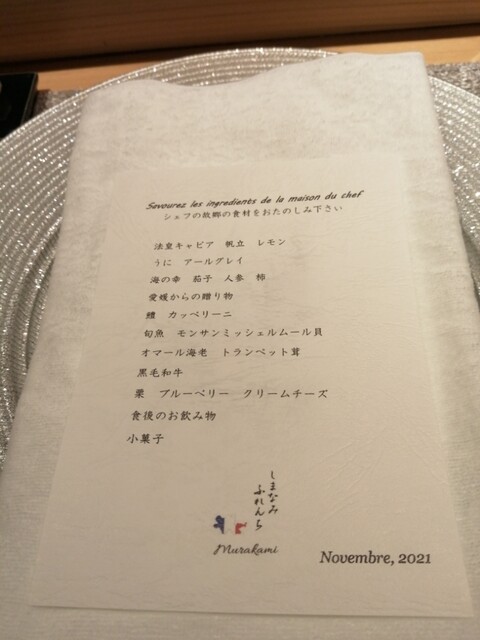 Savourez les ingredients de la maison du chef
シェフの故郷の食材をおたのしみ下さい
法皇キャビア 帆立 レモン
うに アールグレイ
海の幸 茄子 人参 柿
愛媛からの贈り物
鱧 カッペリーニ
旬魚 モンサンミッシェルムール貝
オマール海老 トランペット茸
黒毛和牛
栗 ブルーベリー クリームチーズ
食後のお飲み物
小菓子
しまなみ
ふれんち
Murakami
Novembre, 2021